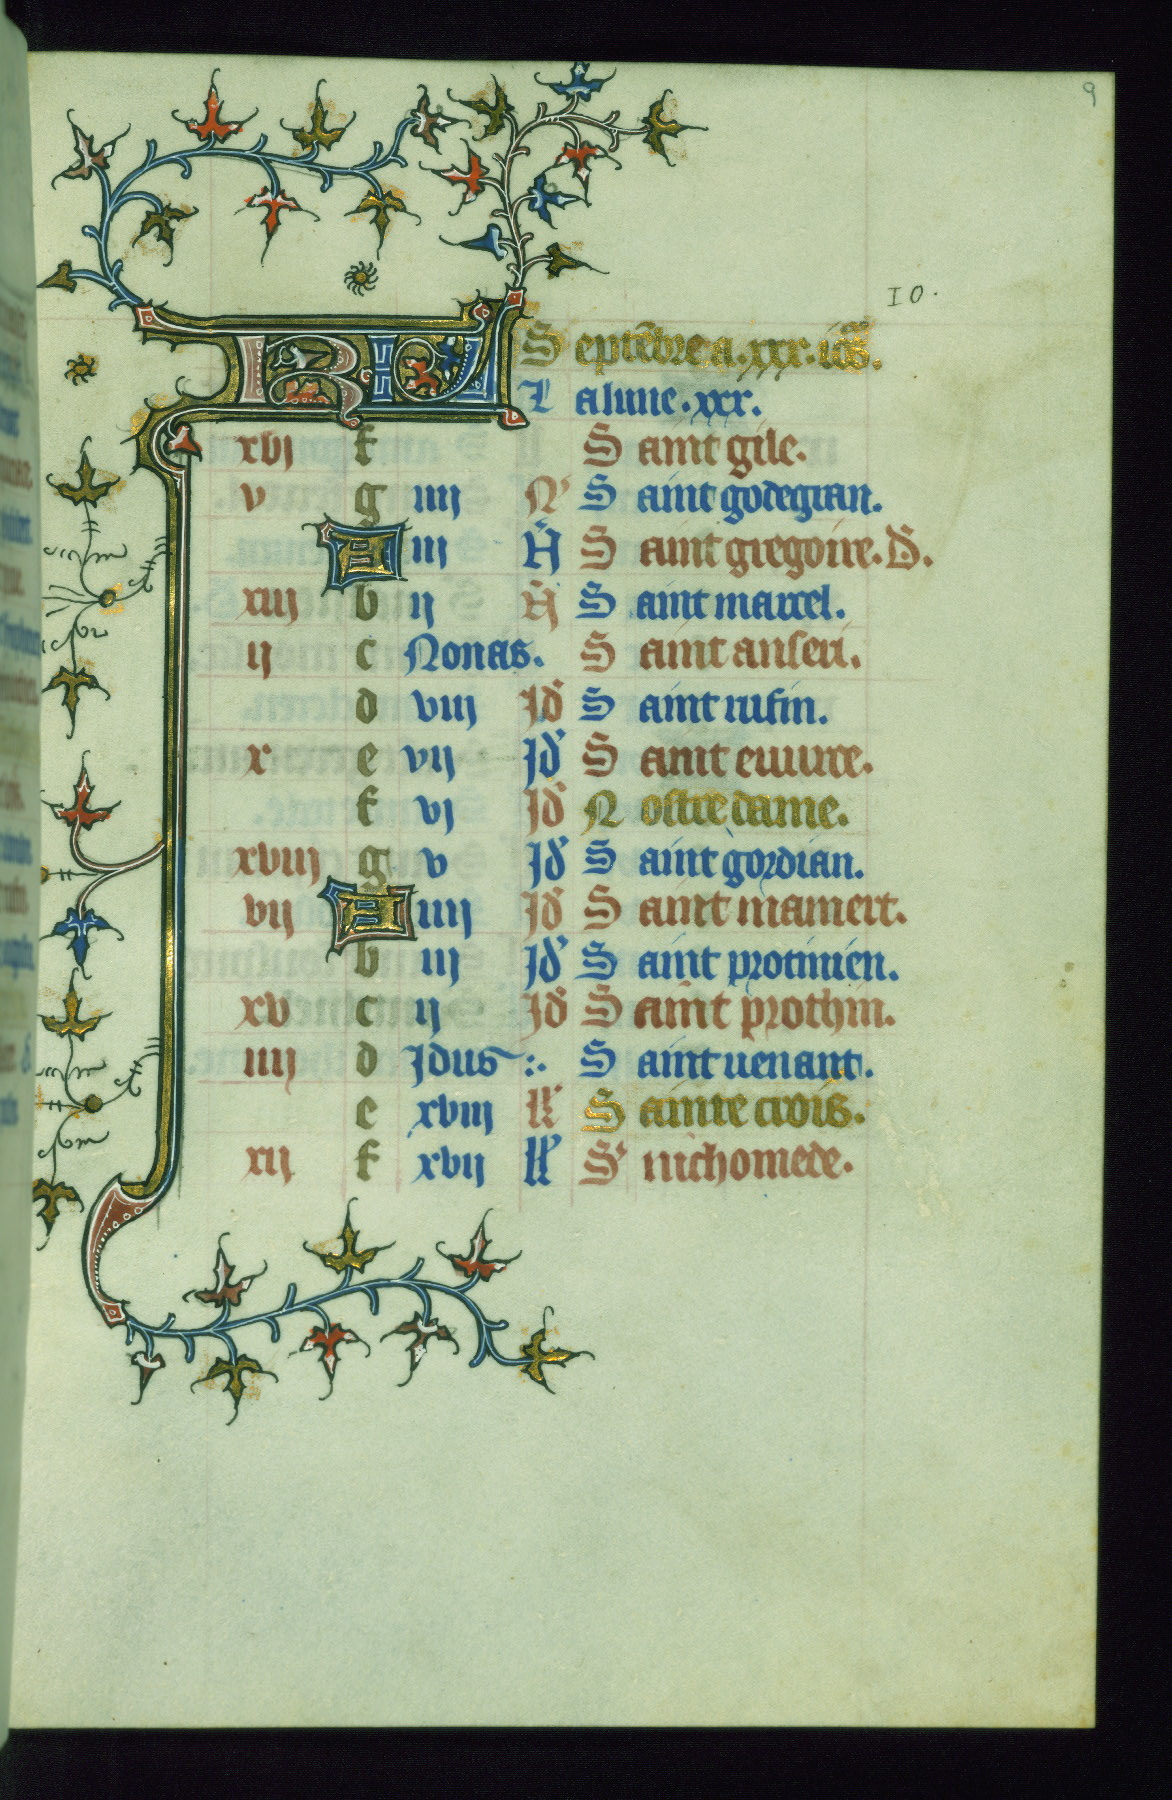 9
10.
KL Septẽbre a. xxx. iõs.
La lune. xxx.
xvj f Saint gile.
v g iiij N' Saint godegran.
A iij N Saint gregoire. D.
xiij b ij N Saint marcel.
ij c Nonas. Saint anseri.
d viij Jd Saint rufin.
x e vij Jd Saint euurce.
f vj Jd Nostre dame.
xviij g v Jd Saint gordian.
vij A iiij Jd Saint mamert.
b iij Jd Saint protinien.
xv c ij Jd Saint prothin.
iiij d Jdus Saint uenant.
e xviij kl' Sainte crois.
xij f xvij kl' S' nichomede.